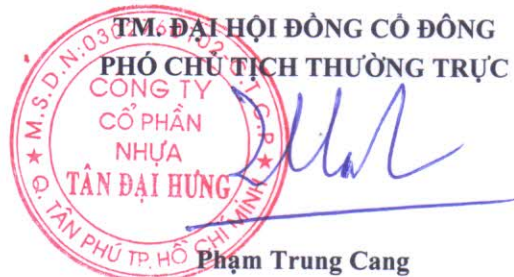 TM. ĐẠI HỘI ĐỒNG CỔ ĐÔNG
PHÓ CHỦ TỊCH THƯỜNG TRỰC
CÔNG TY
CỔ PHẦN
NHỰA
TÂN ĐẠI HƯNG
Q. TÂN PHÚ TP. HỒ CHÍ MINH
Phạm Trung Cang